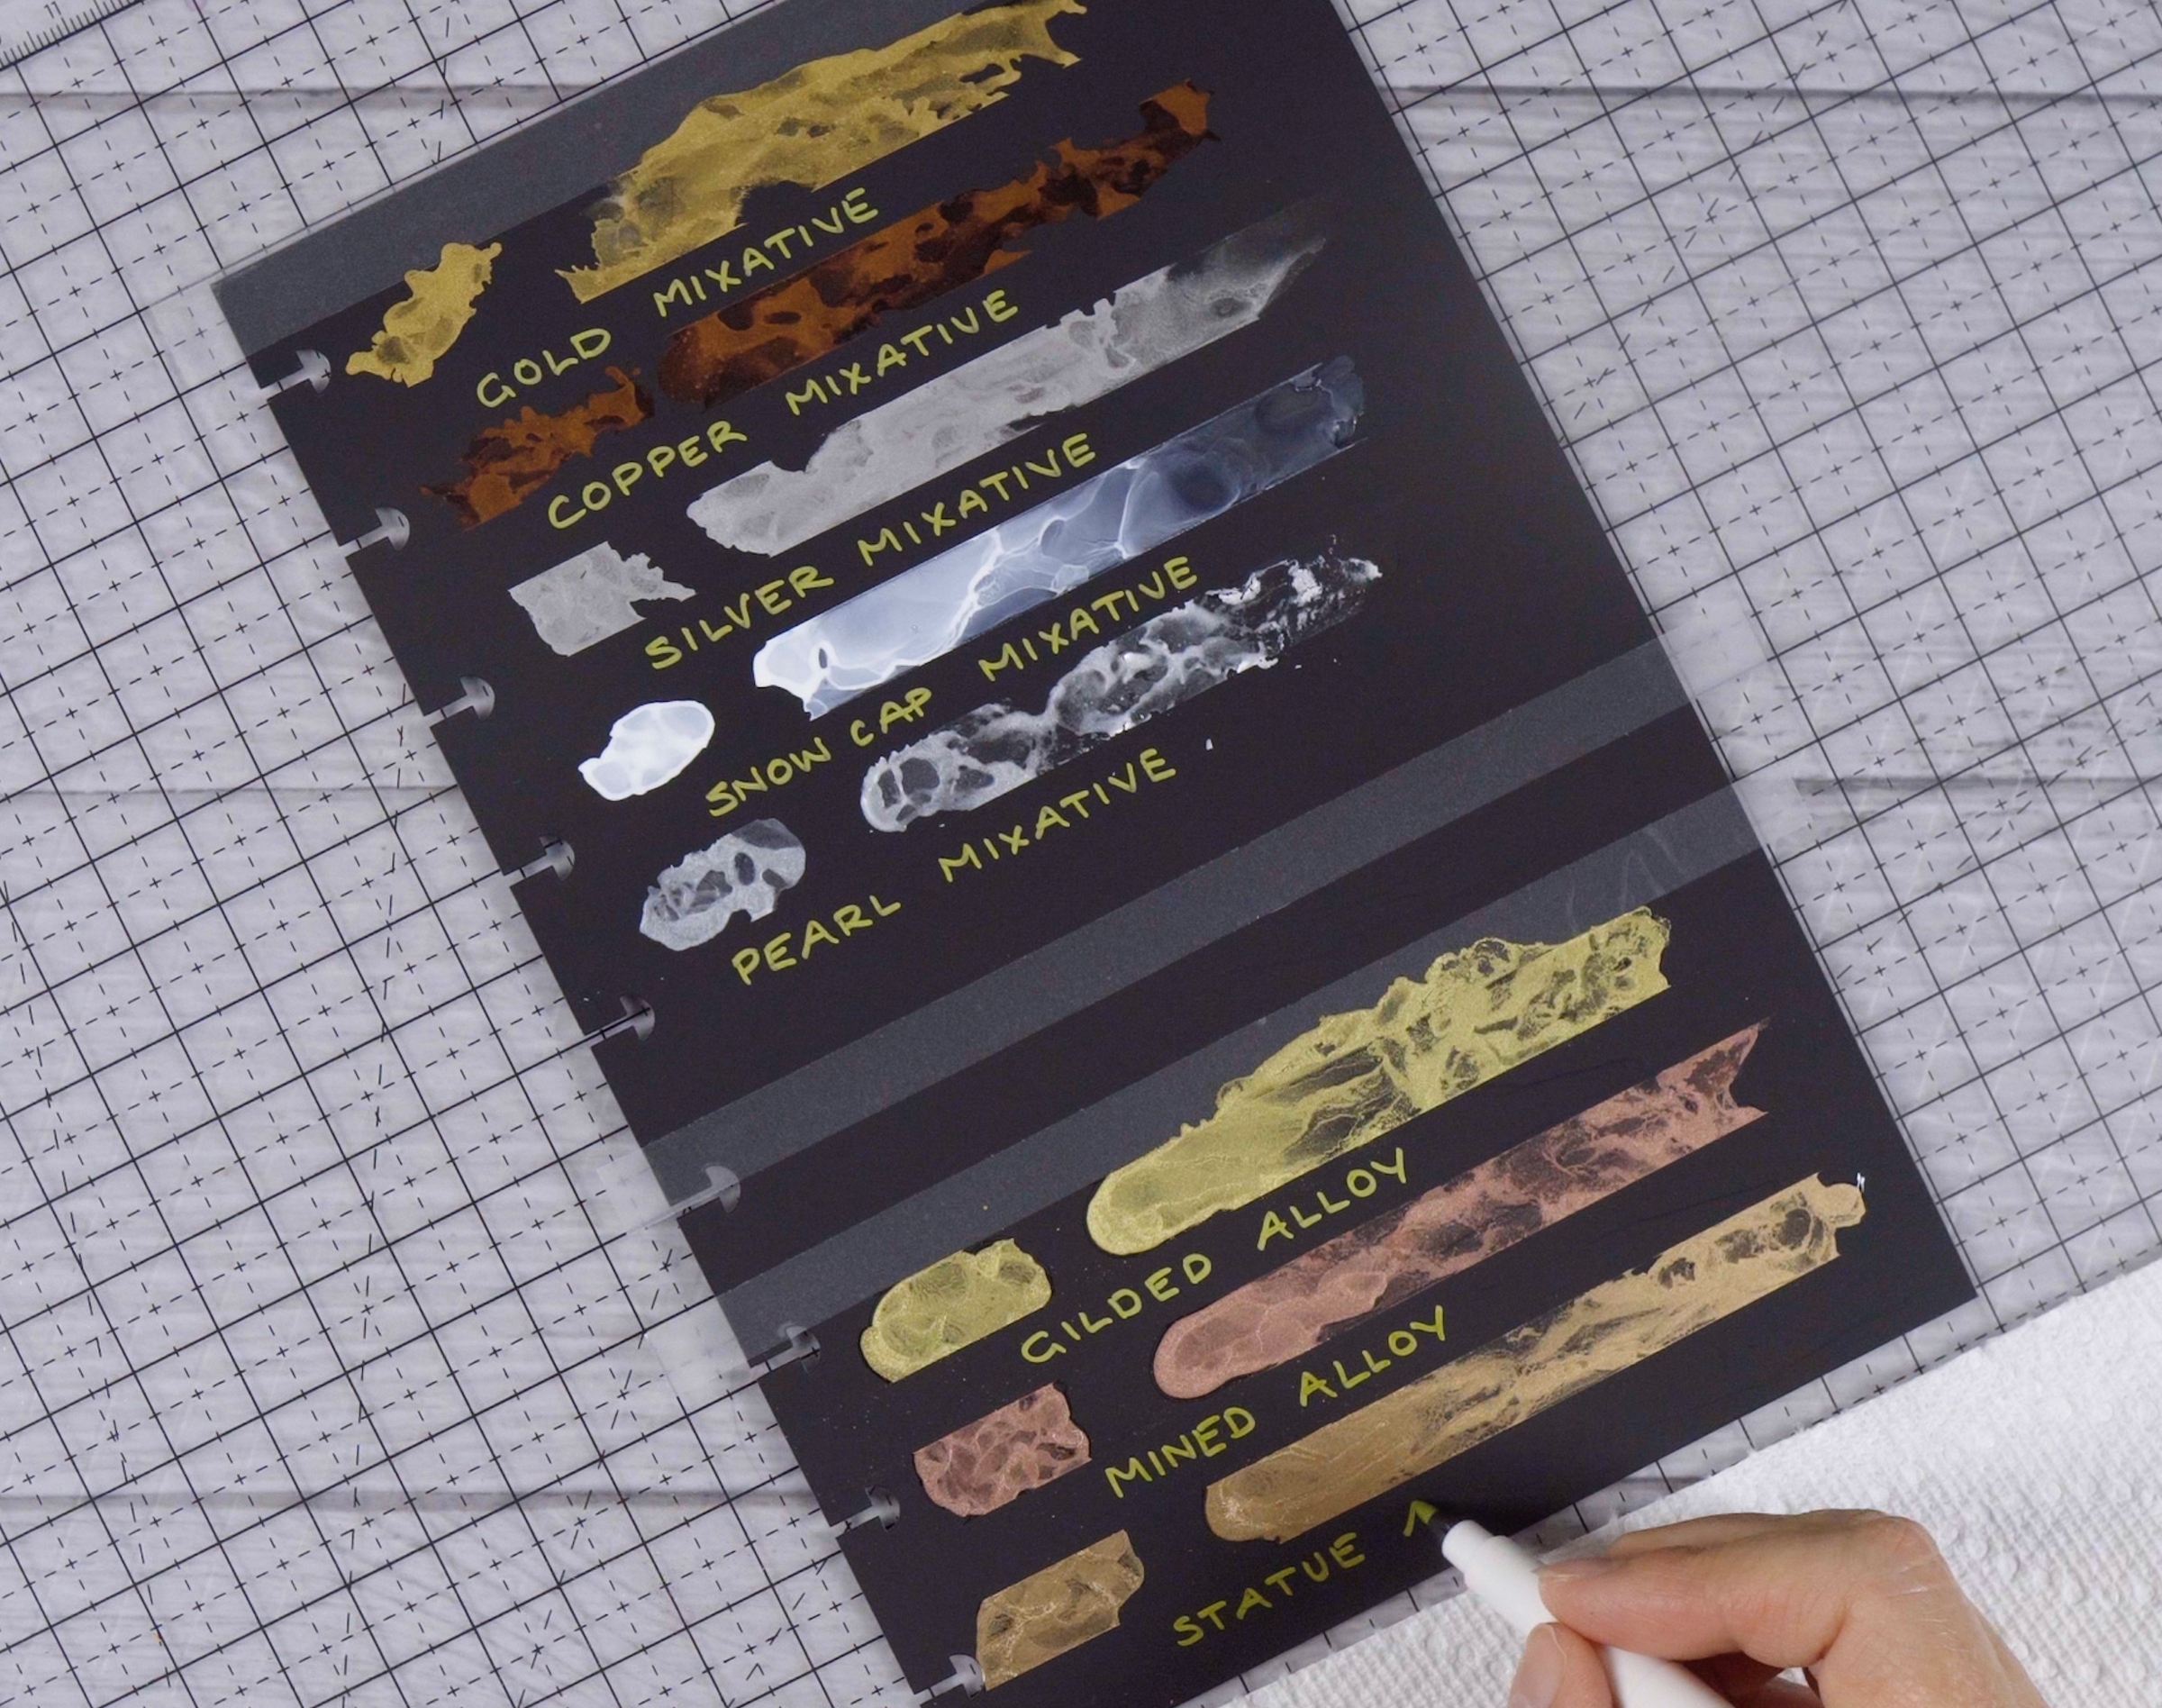 GOLD MIXATIVE
COPPER MIXATIVE
SILVER MIXATIVE
SNOW CAP MIXATIVE
PEARL MIXATIVE
GILDED ALLOY
MINED ALLOY
STATUE A